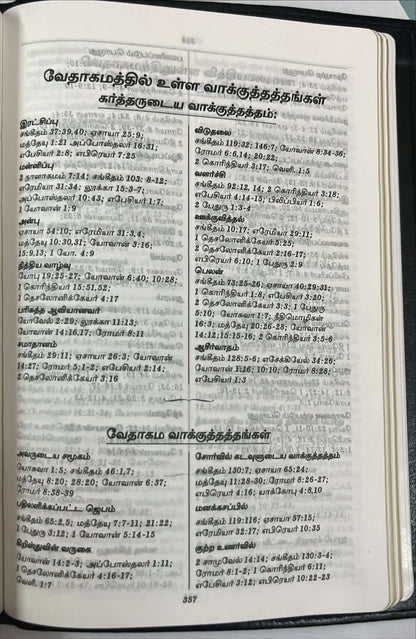 வேதாகமத்தில் உள்ள வாக்குத்தத்தங்கள்
கர்த்தருடைய வாக்குத்தத்தம்:
இரட்சிப்பு
சங்கீதம் 37:39,40; ஏசாயா 25:9;
மத்தேயு 1:21 அப்போஸ்தலர் 16:31;
எபேசியர் 2:8; எபிரெயர் 7:25
மன்னிப்பு
2 நாளாகமம் 7:14; சங்கீதம் 103: 8-12;
எரேமியா 31:34; லூக்கா 15:3-7;
அப்போஸ்தலர் 10:43; எபேசியர் 1:7;
1 யோவான் 1:9
அன்பு
ஏசாயா 54:10; எரேமியா 31:3,4;
மத்தேயு 10:30,31; யோவான் 3:16;
15:9,13; 1 யோ. 4:9
நித்திய வாழ்வு
யோபு 19:25-27; யோவான் 6:40; 10:28;
1 கொரிந்தியர் 15:51,52;
1 தெசலோனிக்கேயர் 4:17
பரிசுத்த ஆவியானவர்
யோவேல் 2:29; லூக்கா 11:13;
யோவான் 14:16,17; ரோமர் 8:11
சமாதானம்
சங்கீதம் 29:11; ஏசாயா 26:3; யோவான்
14:27; ரோமர் 5:1-2; எபேசியர் 2:14;
2 தெசலோனிக்கேயர் 3:16
விடுதலை
சங்கீதம் 119:32; 146:7; யோவான் 8:34-36;
ரோமர் 6:6,14; 20:22;
2 கொரிந்தியர் 3:17; வெளி. 1:5
வளர்ச்சி
சங்கீதம் 92:12, 14; 2 கொரிந்தியர் 3:18;
எபேசியர் 4:14-15; பிலிப்பியர் 1:6;
2 பேதுரு 1:3-4
ஊக்குவித்தல்
சங்கீதம் 10:17; எரேமியா 29:11;
1 தெசலோனிக்கேயர் 5:25;
2 தெசலோனிக்கேயர் 2:16-17;
எபிரெயர் 6:10; 1 பேதுரு 2:9
பெலன்
சங்கீதம் 73:25-26; ஏசாயா 40:29-31;
1 கொரிந்தியர் 1:8; எபேசியர் 3:20;
2 தெசலோனிக்கேயர் 3:3; 1 பேதுரு
5:10; யோசுவா 1:7; நீதிமொழிகள்
16:3; மத்தேயு 20:26-28; யோவான்
14:12;15:15-16; 2 கொரிந்தியர் 3:5-6
ஆசீர்வாதம்
சங்கீதம் 128:5-6; எசேக்கியேல் 34:26;
யோவான் 1:16; 10:10; ரோமர் 8:28;
எபேசியர் 1:3
வேதாகம வாக்குத்தத்தங்கள்
அவருடைய சமூகம்
யோசுவா 1:5; சங்கீதம் 46:1,7;
மத்தேயு 8:20; 28:20; யோவான் 6:37;
ரோமர் 8:38-39
பதிலளிக்கப்பட்ட ஜெபம்
சங்கீதம் 65:2,5; மத்தேயு 7:7-11; 21:22;
1 பேதுரு 3:12; 1 யோவான் 5:14-15
கிறிஸ்துவின் வருகை
யோவான் 14:2-3; அப்போஸ்தலர் 1:11;
1 தெசலோனிக்கேயர் 4:16-17;
வெளி. 1:7
சோர்வில் கடவுளுடைய வாக்குத்தத்தம்
சங்கீதம் 130:7; ஏசாயா 65:24;
மத்தேயு 11:28-30; ரோமர் 8:26-27;
எபிரெயர் 4:16; யாக்கோபு 4:8,10
மனக்கசப்பில்
சங்கீதம் 119:116; ஏசாயா 57:15;
எரேமியா 32:17; எபிரெயர் 10:35
குற்ற உணர்வில்
2 சாமுவேல் 14:14; சங்கீதம் 130:3-4;
ரோமர் 8:1-2; 1 கொரிந்தியர் 6:11;
எபேசியர் 3:12; எபிரெயர் 10:22-23
357